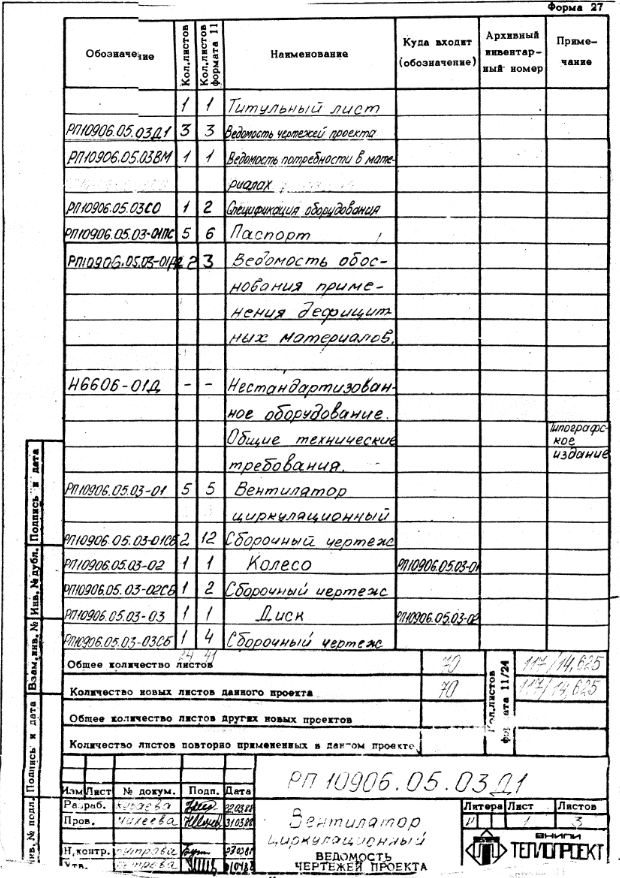 Форма 27
Обозначение Кол.листов Кол.листов формата 11 Наименование Куда входит (обозначение) Архивный инвентарный номер Примечание
1 1 Титульный лист
РП10906.05.03Д1 3 3 Ведомость чертежей проекта
РП10906.05.03ВМ 1 1 Ведомость потребности в мате-
риалах
РП10906.05.03СО 1 2 Спецификация оборудования
РП10906.05.03-01ПС 5 6 Паспорт
РП10906.05.03-01Д2 2 3 Ведомость обос-
нования приме-
нения дефицит
ных материалов.
Н6606-01Д - - Нестандартизован-
ное оборудование.
Общие технические Типографс-
кое
требования. издание
РП10906.05.03-01 5 5 Вентилатор
циркуляционный
РП10906.05.03-01СБ 2 12 Сборочный чертеж
РП10906.05.03-02 1 1 Колесо РП10906.05.03-01
РП10906.05.03-02СБ 1 2 Сборочный чертеж
РП10906.05.03-03 1 1 Диск РП10906.05.03-02
РП10906.05.03-03СБ 1 4 Сборочный чертеж
24 41
Общее количество листов 70 117/14,625
Количество новых листов данного проекта 70 117/14,625
Общее количество листов других новых проектов
Количество листов повторно примененных в данном проекте
Кол.листов формата 11/24
Инв.№ подл. Подпись и дата Взам.инв.№ Инв.№ дубл. Подпись и дата
РП 10906.05.03Д1
Изм Лист № докум. Подп. Дата
Разраб.
Пров.
Н.контр.
Утв.
Вентилатор
циркуляционный
ВЕДОМОСТЬ
ЧЕРТЕЖЕЙ ПРОЕКТА
Литера Лист Листов
1 3
ВНИПИ
ТЕПЛОПРОЕКТ